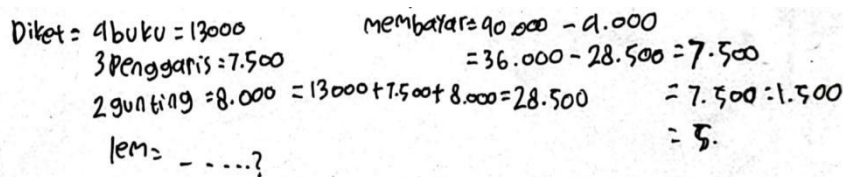 Diket = 4 buku = 13000
3 Penggaris : 7.500
2 gunting = 8.000 = 13000 + 7.500 + 8.000 = 28.500
lem = - - ....?
Membayar = 40.000 - 4.000
= 36.000 - 28.500 = 7.500
= 7.500 : 1.500
= 5.